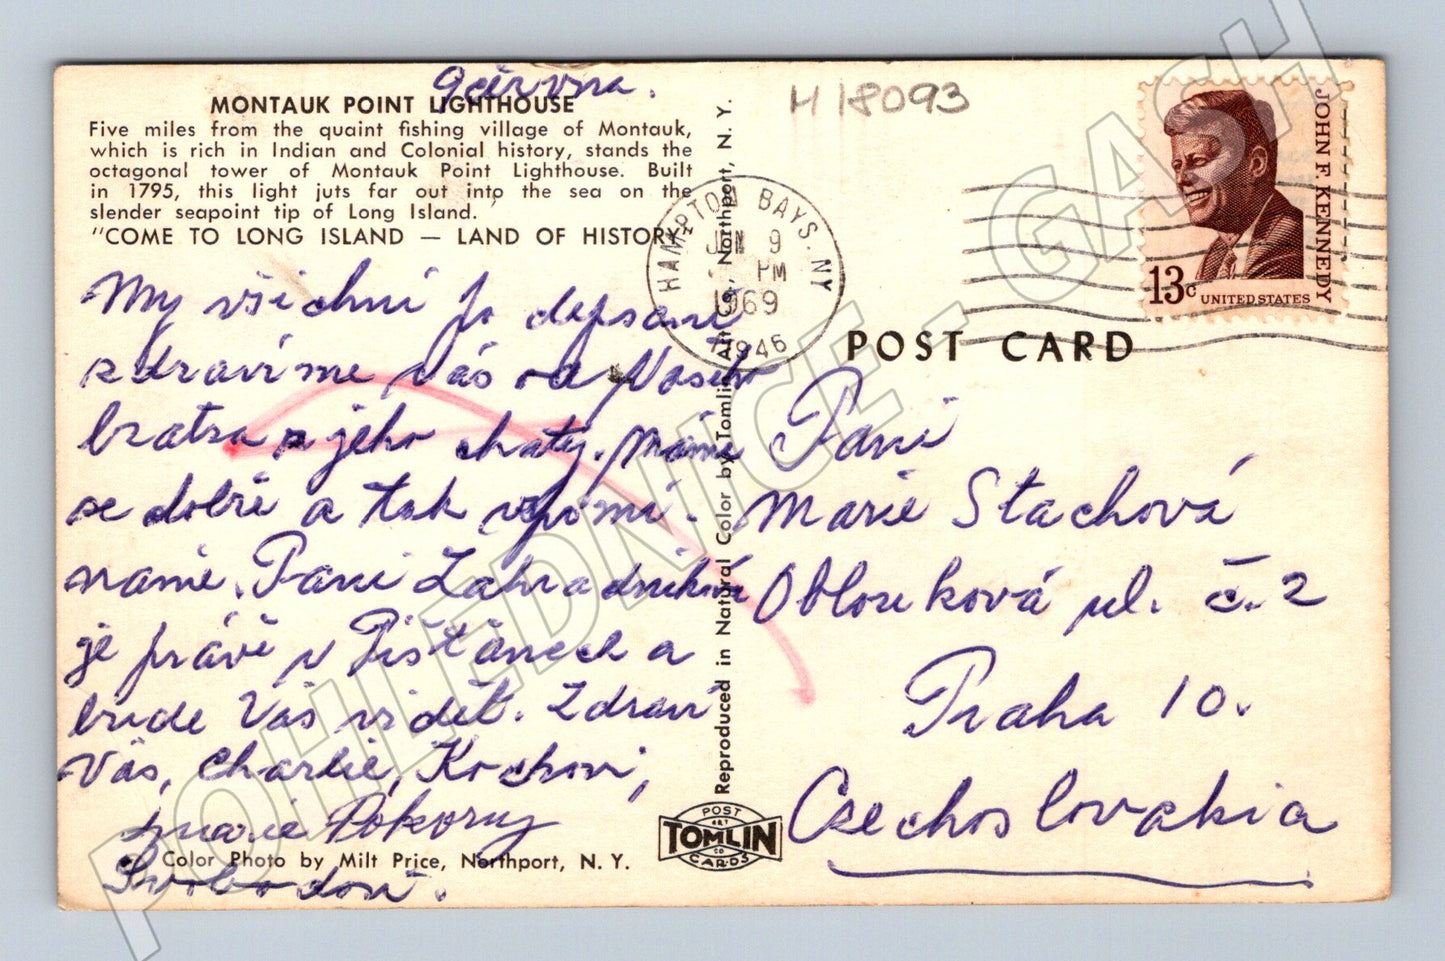 9 června.
H 18093
MONTAUK POINT LIGHTHOUSE
Five miles from the quaint fishing village of Montauk,
which is rich in Indian and Colonial history, stands the
octagonal tower of Montauk Point Lighthouse. Built
in 1795, this light juts far out into the sea on the
slender seapoint tip of Long Island.
"COME TO LONG ISLAND — LAND OF HISTORY"
My všichni
zdravíme Vás od Vašeho
bratra z jeho chaty. Máme
se dobře a tak vzpomí-
náme. Paní Zahradníková
je právě v Pišťanech a
bude Vás vidět. Zdraví
Vás, Charlie, Kochovi,
Marie Pokorny
Svobodovi.
Color Photo by Milt Price, Northport, N. Y.
Reproduced in Natural Color by Tomlin Art Co., Northport, N. Y.
POST
ART
TOMLIN
CO
CARDS
HAMPTON BAYS. NY
JUN 9
PM
1969
11946
JOHN F. KENNEDY
13c UNITED STATES
POST CARD
Paní
Marie Stachová
Oblouková ul. č. 2
Praha 10.
Czechoslovakia
POHLEDNICE - GASH